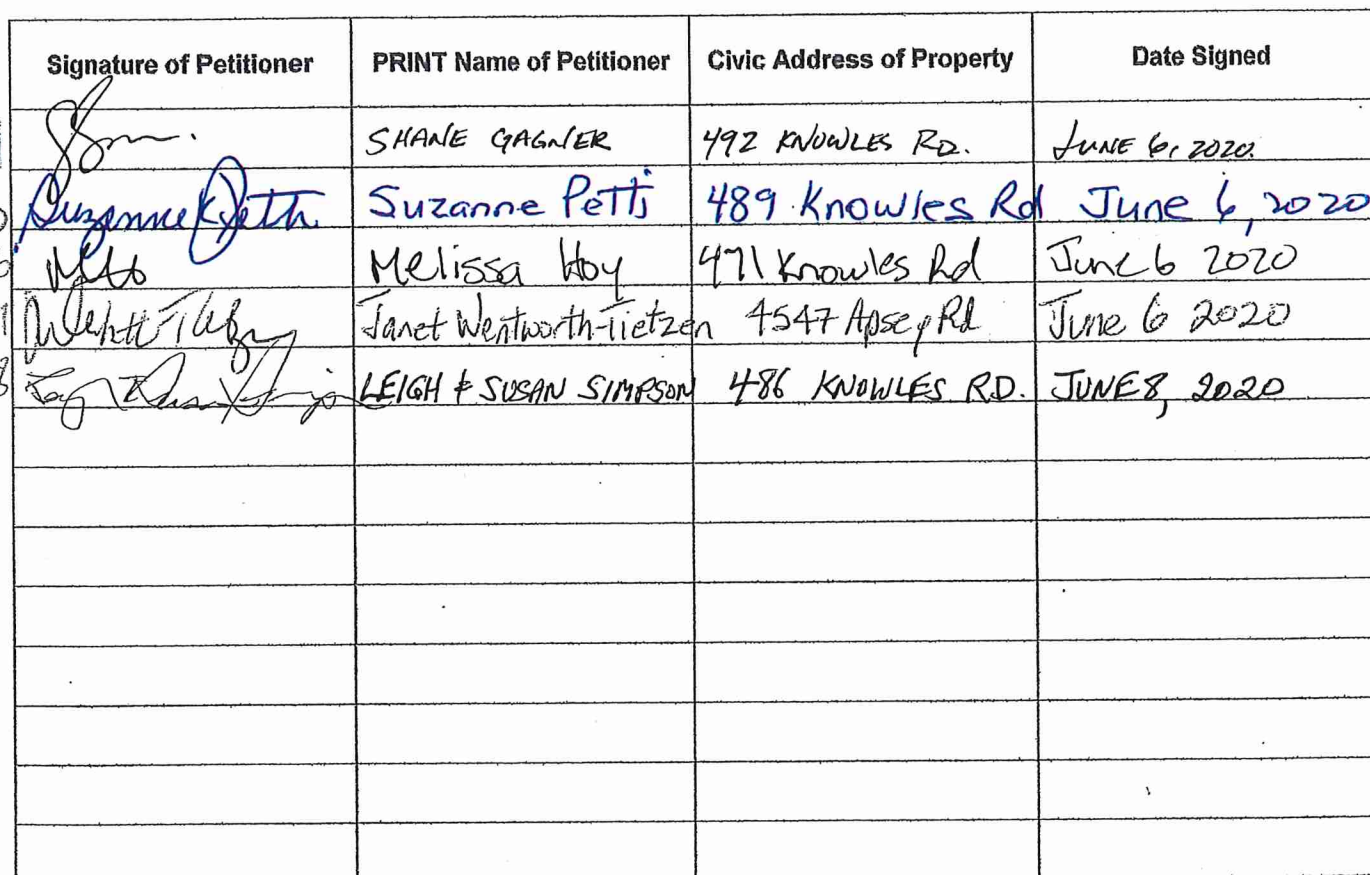 Signature of Petitioner PRINT Name of Petitioner Civic Address of Property Date Signed
SHANE GAGNIER 492 KNOWLES RD. JUNE 6, 2020.
Suzanne Petti Suzanne Petti 489 Knowles Rd June 6, 2020
Melissa Hoy 471 Knowles Rd June 6 2020
Janet Wentworth-Tietzen 4547 Apsey Rd June 6 2020
LEIGH & SUSAN SIMPSON 486 KNOWLES RD. JUNE 8, 2020